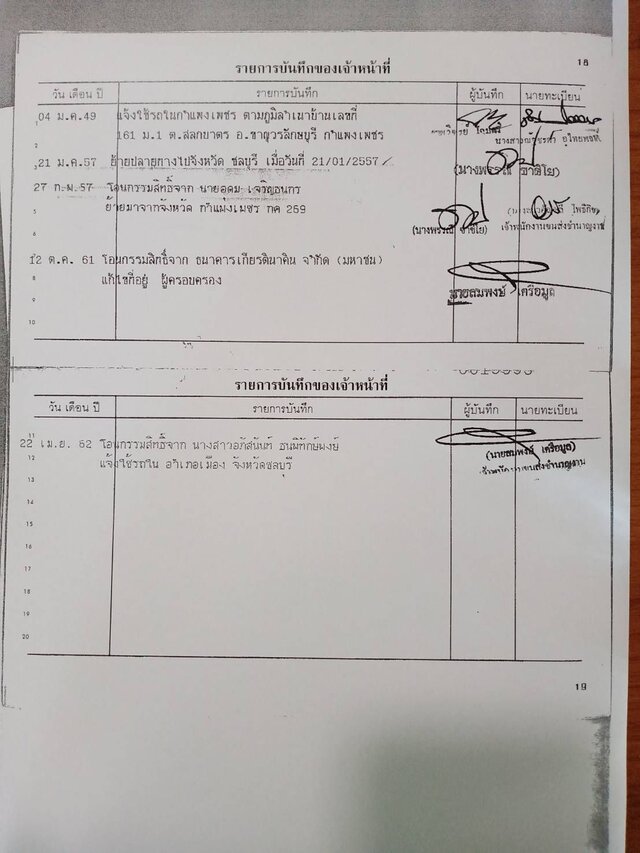 18
รายการบันทึกของเจ้าหน้าที่
วัน เดือน ปี รายการบันทึก ผู้บันทึก นายทะเบียน
04 ม.ค.49 แจ้งใช้รถในกำแพงเพชร ตามภูมิลำเนาบ้านเลขที่
161 ม.1 ต.สลกบาตร อ.ขาณุวรลักษบุรี กำแพงเพชร
21 ม.ค.57 ย้ายปลายทางไปจังหวัด ชลบุรี เมื่อวันที่ 21/01/2557
27 ก.พ.57 โอนกรรมสิทธิ์จาก นายอุดม เจริญธนกร
ย้ายมาจากจังหวัด กำแพงเพชร กค 259
เจ้าพนักงานขนส่งชำนาญงาน
12 ต.ค. 61 โอนกรรมสิทธิ์จาก ธนาคารเกียรตินาคิน จำกัด (มหาชน)
แก้ไขที่อยู่ ผู้ครอบครอง
นายสมพงษ์ เครือมูล
รายการบันทึกของเจ้าหน้าที่
วัน เดือน ปี รายการบันทึก ผู้บันทึก นายทะเบียน
22 เม.ย. 62 โอนกรรมสิทธิ์จาก นางสาวอภัสนันท์ ธนพิทักษ์พงษ์
(นายสมพงษ์ เครือมูล)
แจ้งใช้รถใน อำเภอเมือง จังหวัดชลบุรี
เจ้าพนักงานขนส่งชำนาญงาน
19